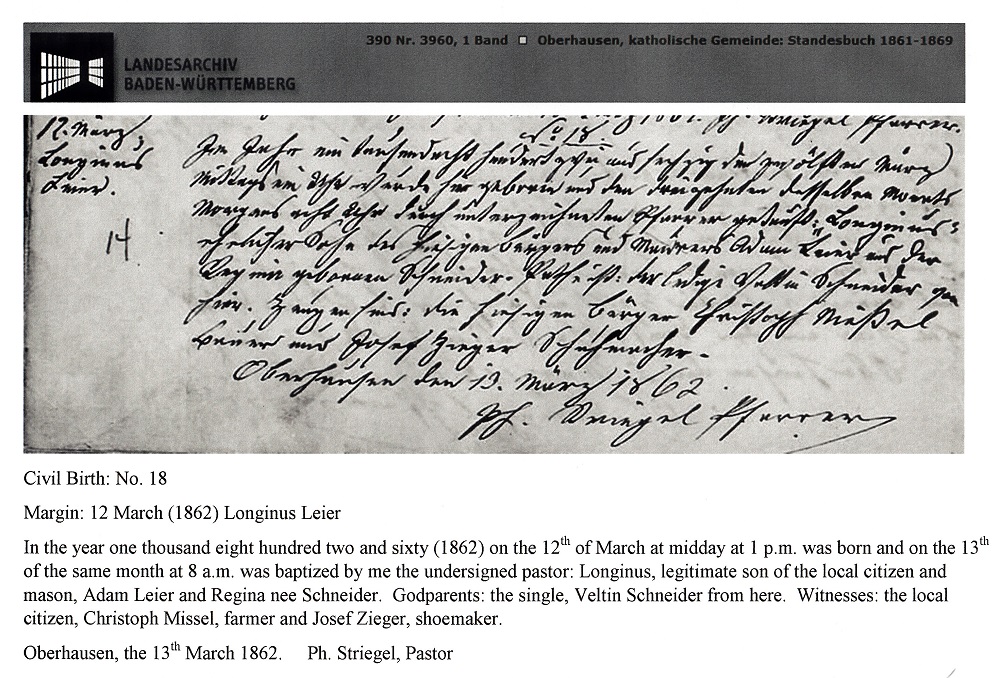 390 Nr. 3960, 1 Band ▫ Oberhausen, katholische Gemeinde: Standesbuch 1861-1869
LANDESARCHIV
BADEN-WÜRTTEMBERG
Pfarrer.
No 18.
12. März
Longinus
Leier.
14
Im Jahr ein tausendacht hundert zwei und sechzig den zwölften März
Mittags ein Uhr wurde hier geboren und den dreizehnten desselben Monats
Morgens acht Uhr durch unterzeichneten Pfarrer getauft: Longinus:
ehelicher Sohn des hiesigen Bürgers und Maurers Adam Leier und der
Regina gebornen Schneider. Pathe ist: der ledige Veltin Schneider von
hier. Zeugen sind: die hiesigen Bürger Christoph Mißel
Bauer und Josef Zieger Schuhmacher.
Oberhausen den 13. März 1862.
Ph. Striegel Pfarrer
Civil Birth: No. 18
Margin: 12 March (1862) Longinus Leier
In the year one thousand eight hundred two and sixty (1862) on the 12th of March at midday at 1 p.m. was born and on the 13th
of the same month at 8 a.m. was baptized by me the undersigned pastor: Longinus, legitimate son of the local citizen and
mason, Adam Leier and Regina nee Schneider. Godparents: the single, Veltin Schneider from here. Witnesses: the local
citizen, Christoph Missel, farmer and Josef Zieger, shoemaker.
Oberhausen, the 13th March 1862. Ph. Striegel, Pastor